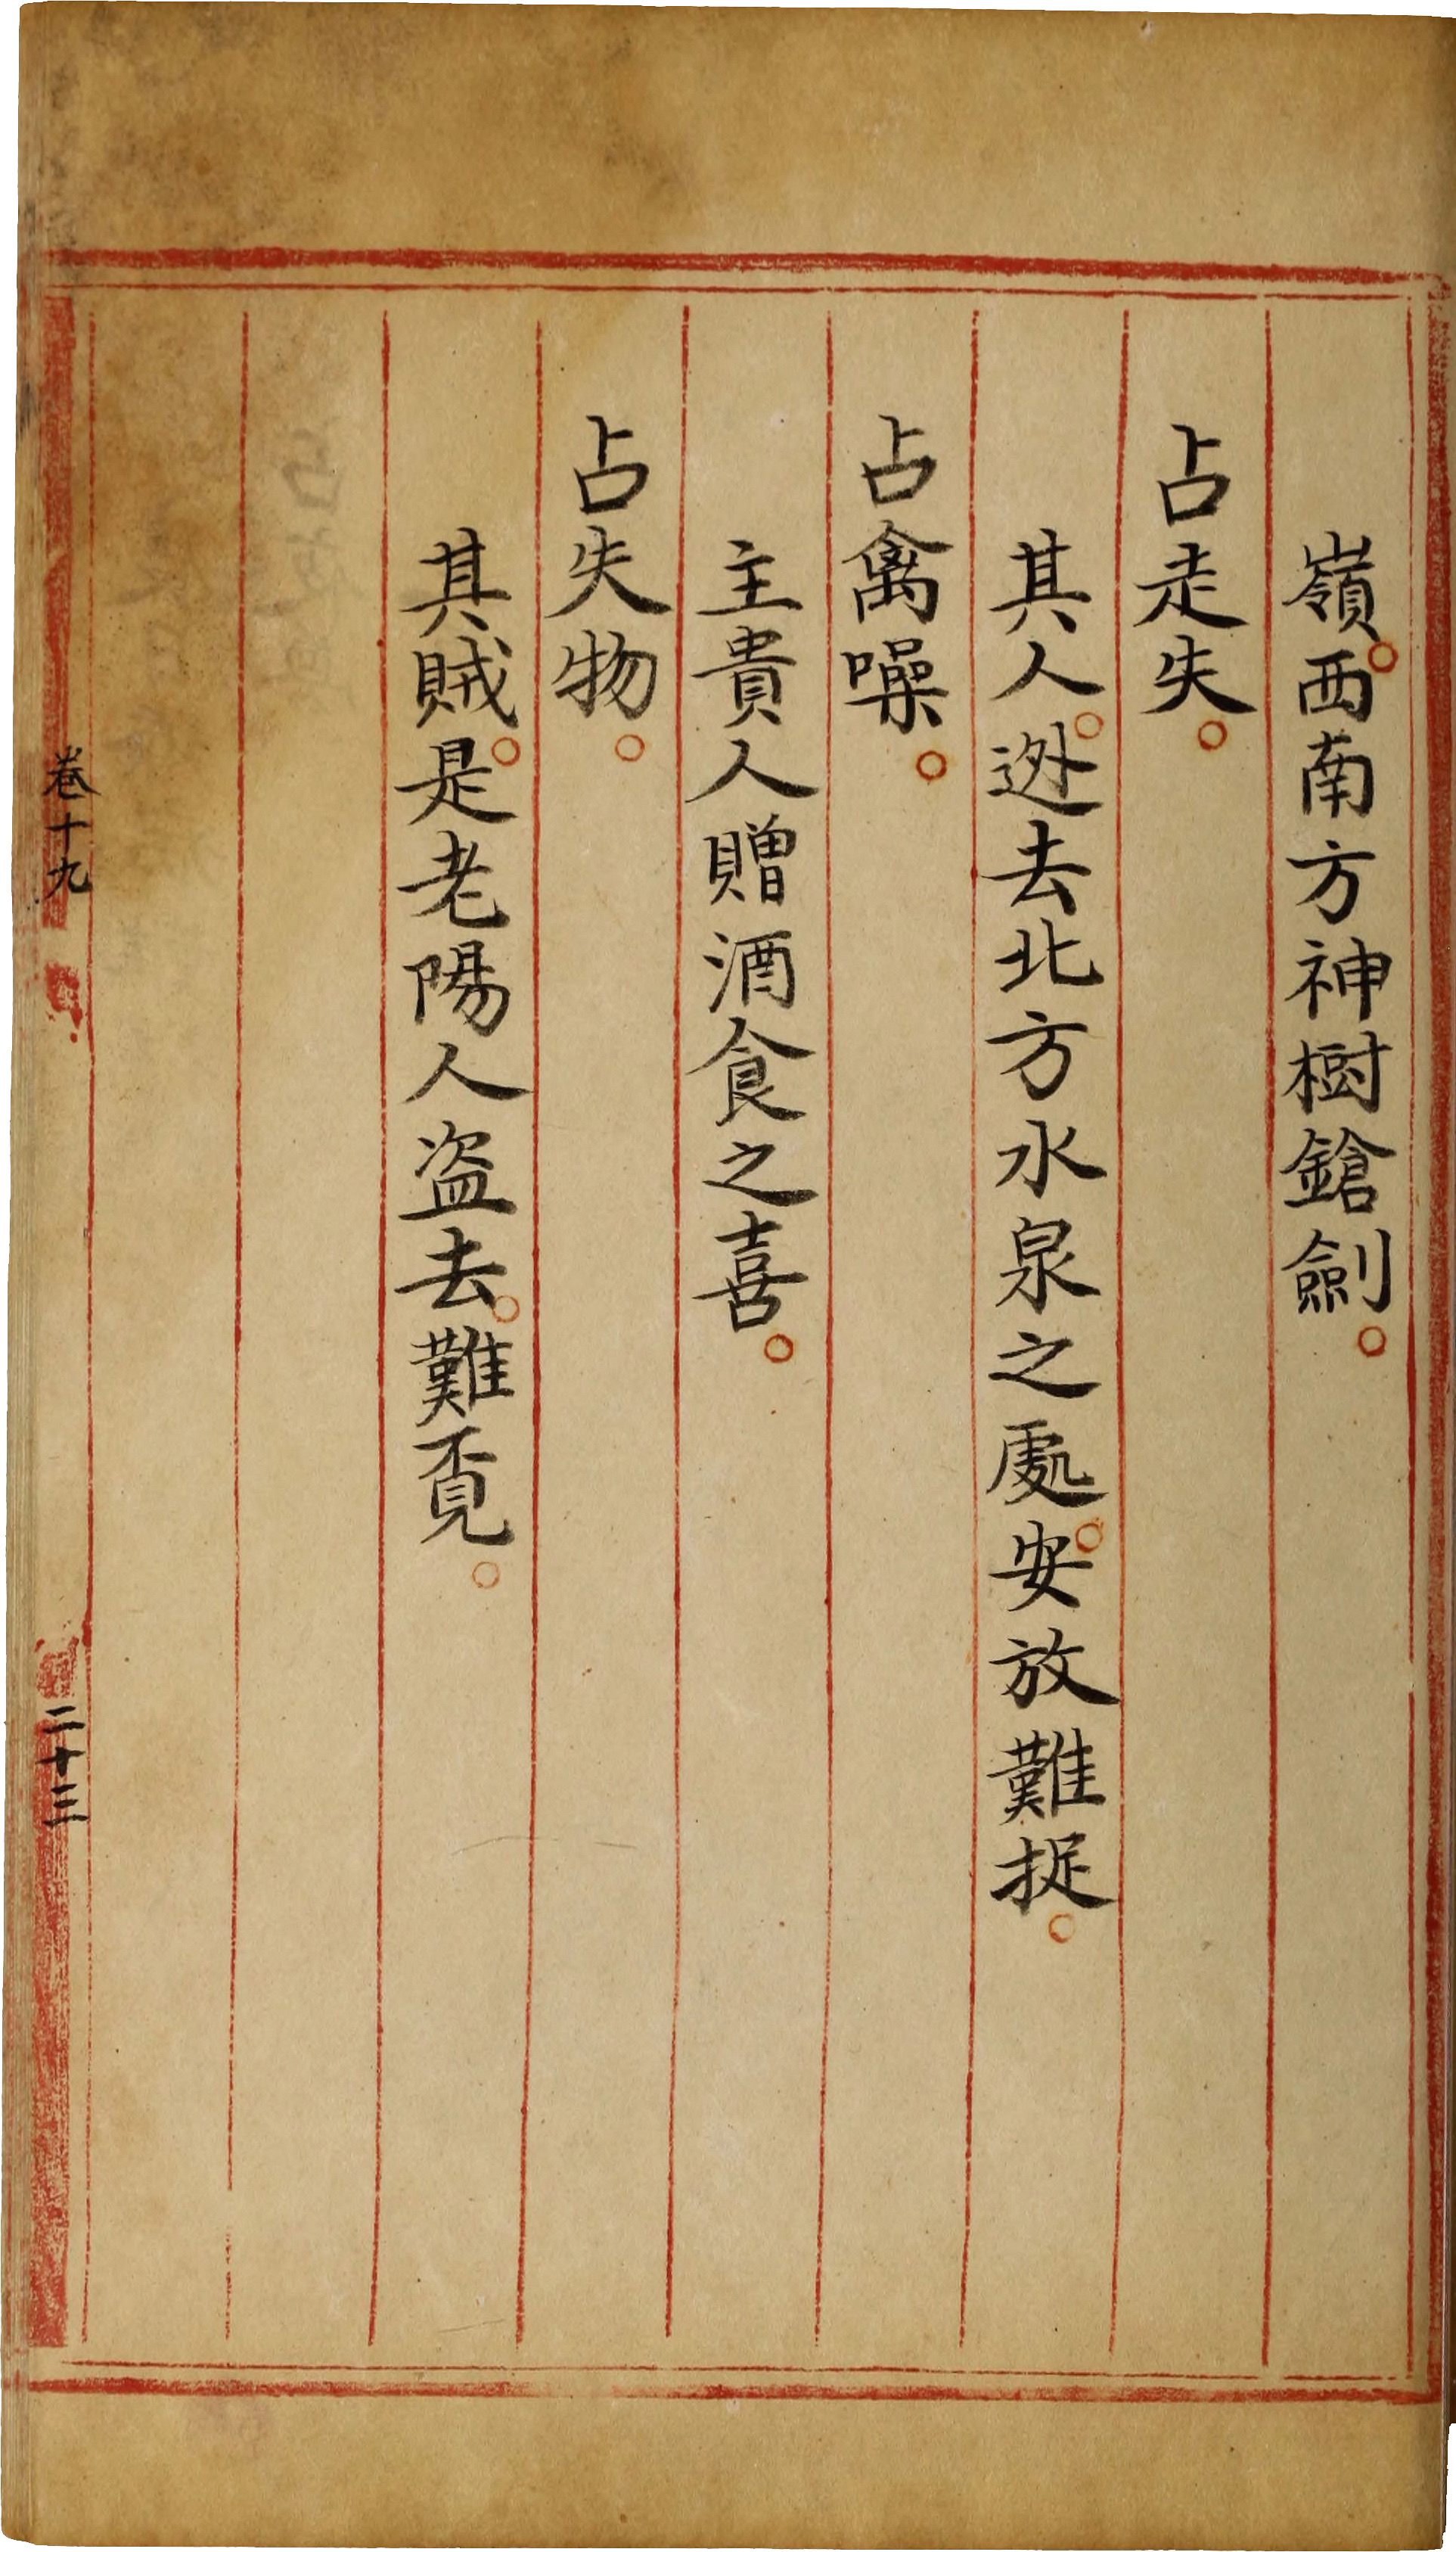 嶺。西南方神樹鎗劍。
占走失。
其人。迯去北方水泉之處。安放難捉。
占禽噪。
主貴人贈酒食之喜。
占失物。
其賊。是老陽人盗去。難覔。
卷十九
二十三